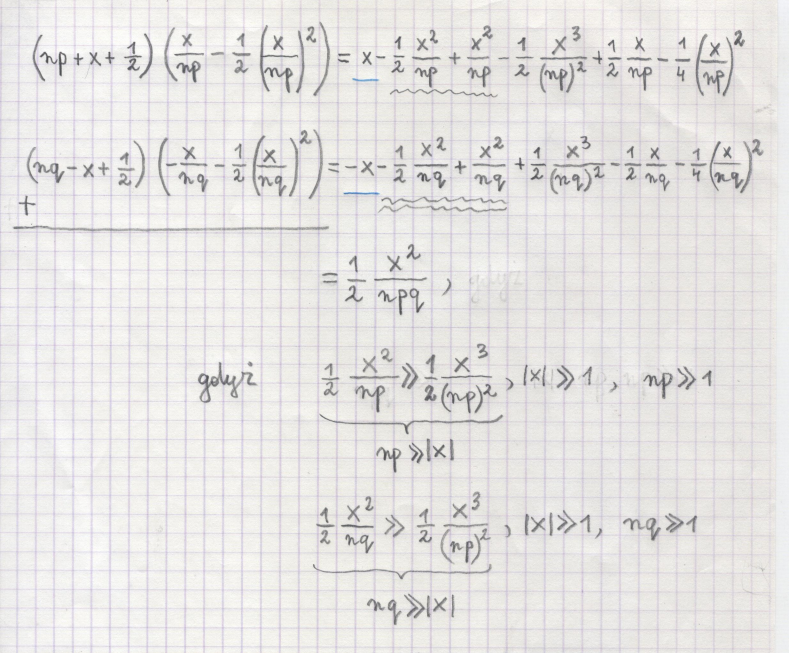 (np + x + 1/2) (x/np - 1/2 (x/np)²) = x - 1/2 x²/np + x²/np - 1/2 x³/(np)² + 1/2 x/np - 1/4 (x/np)²
(nq - x + 1/2) (-x/nq - 1/2 (x/nq)²) = -x - 1/2 x²/nq + x²/nq + 1/2 x³/(nq)² - 1/2 x/nq - 1/4 (x/nq)²
+
= 1/2 x²/npq ,
gdyż 1/2 x²/np ≫ 1/2 x³/(np)² , |x| ≫ 1 , np ≫ 1
np ≫ |x|
1/2 x²/nq ≫ 1/2 x³/(np)² , |x| ≫ 1, nq ≫ 1
nq ≫ |x|